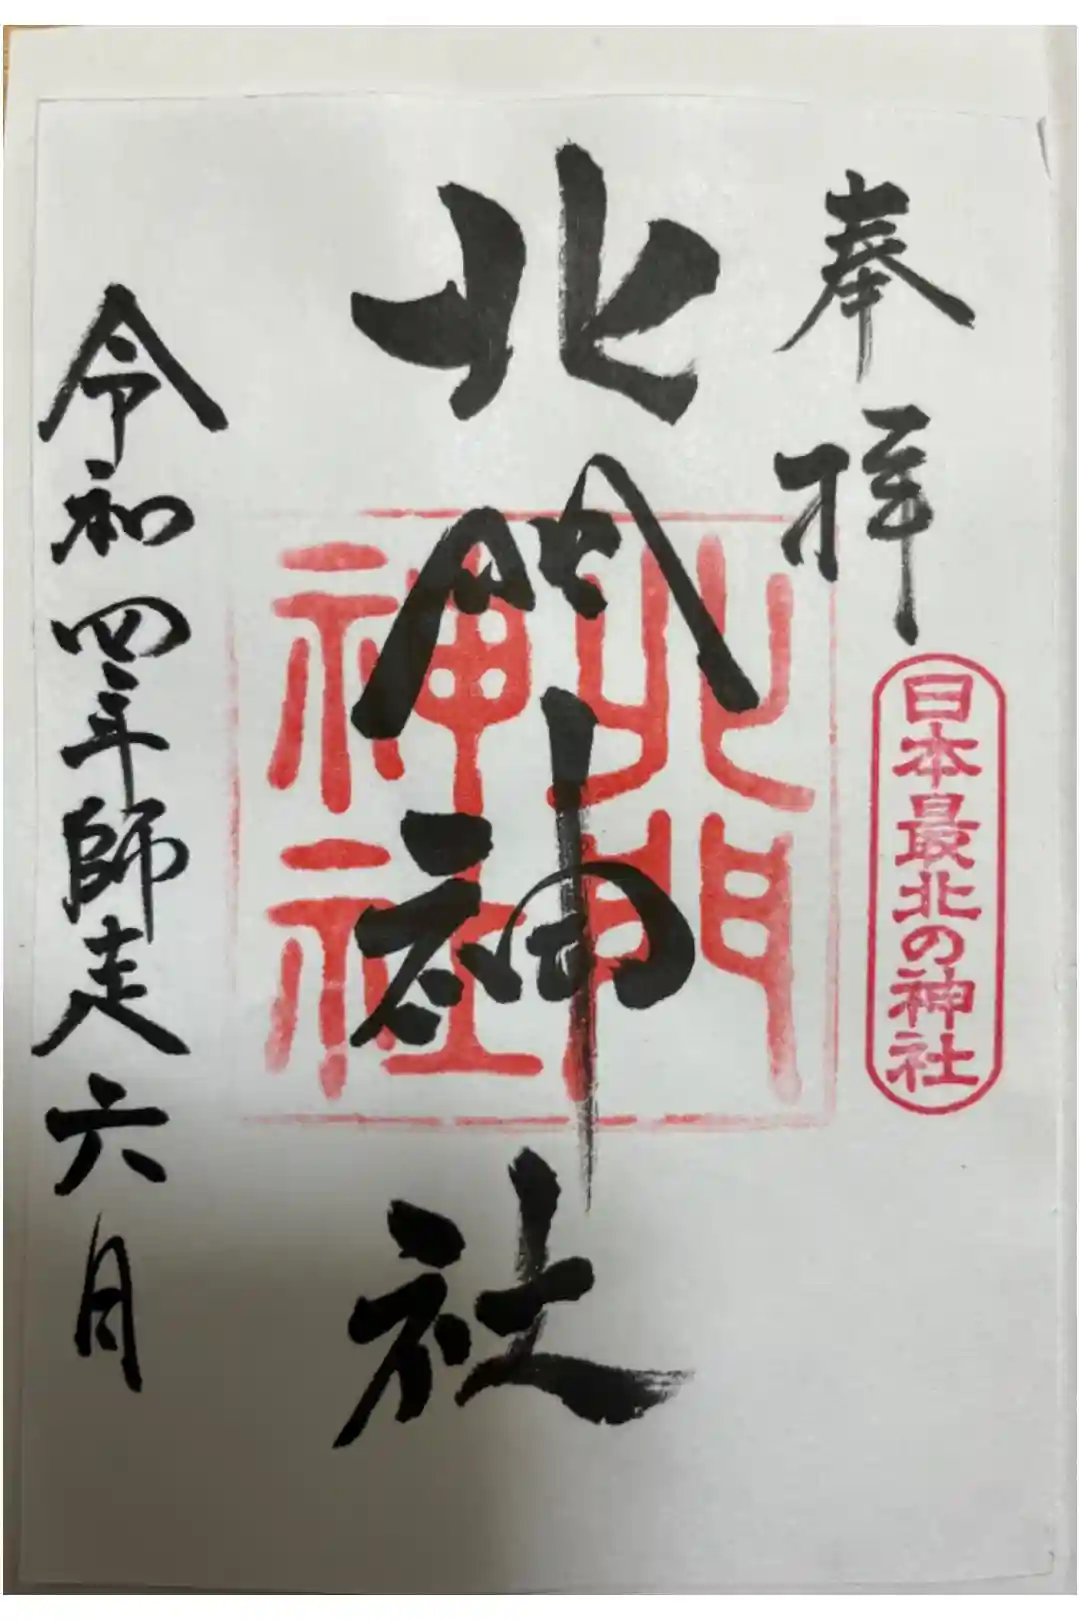 奉拝
日本最北の神社
北門神社
北門
神社
令和四年師走六日